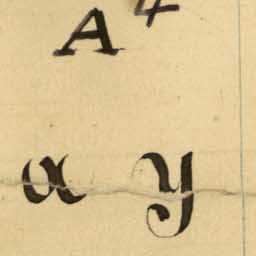 A 4
a y